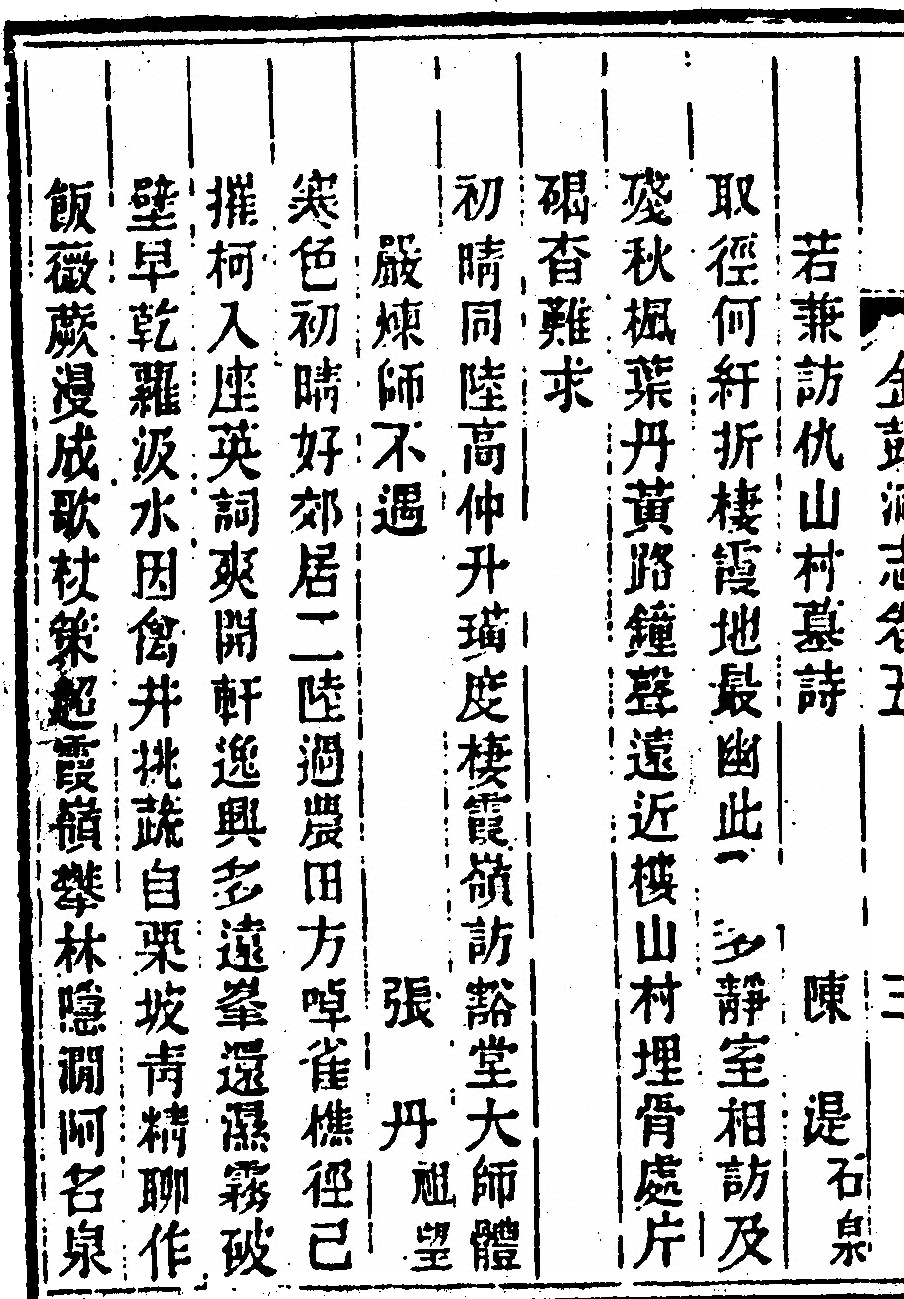 金鼓洞志卷五　三
若兼訪仇山村墓詩　陳　湜石泉
取徑何紆折棲霞地最幽此　多靜室相訪及
殘秋楓葉丹黃路鐘聲遠近樓山村埋骨處片
碣杳難求
初晴同陸高仲升璜度棲霞嶺訪豁堂大師體
嚴煉師不遇　張　丹祖望
寒色初晴好郊居二陸過農田方啅雀樵徑已
摧柯入座英詞爽開軒逸興多遠峯還濕霧破
壁早乾蘿汲水因禽井挑蔬自栗坡靑精聊作
飯薇蕨漫成歌杖策超霞嶺攀林隱澗阿名泉